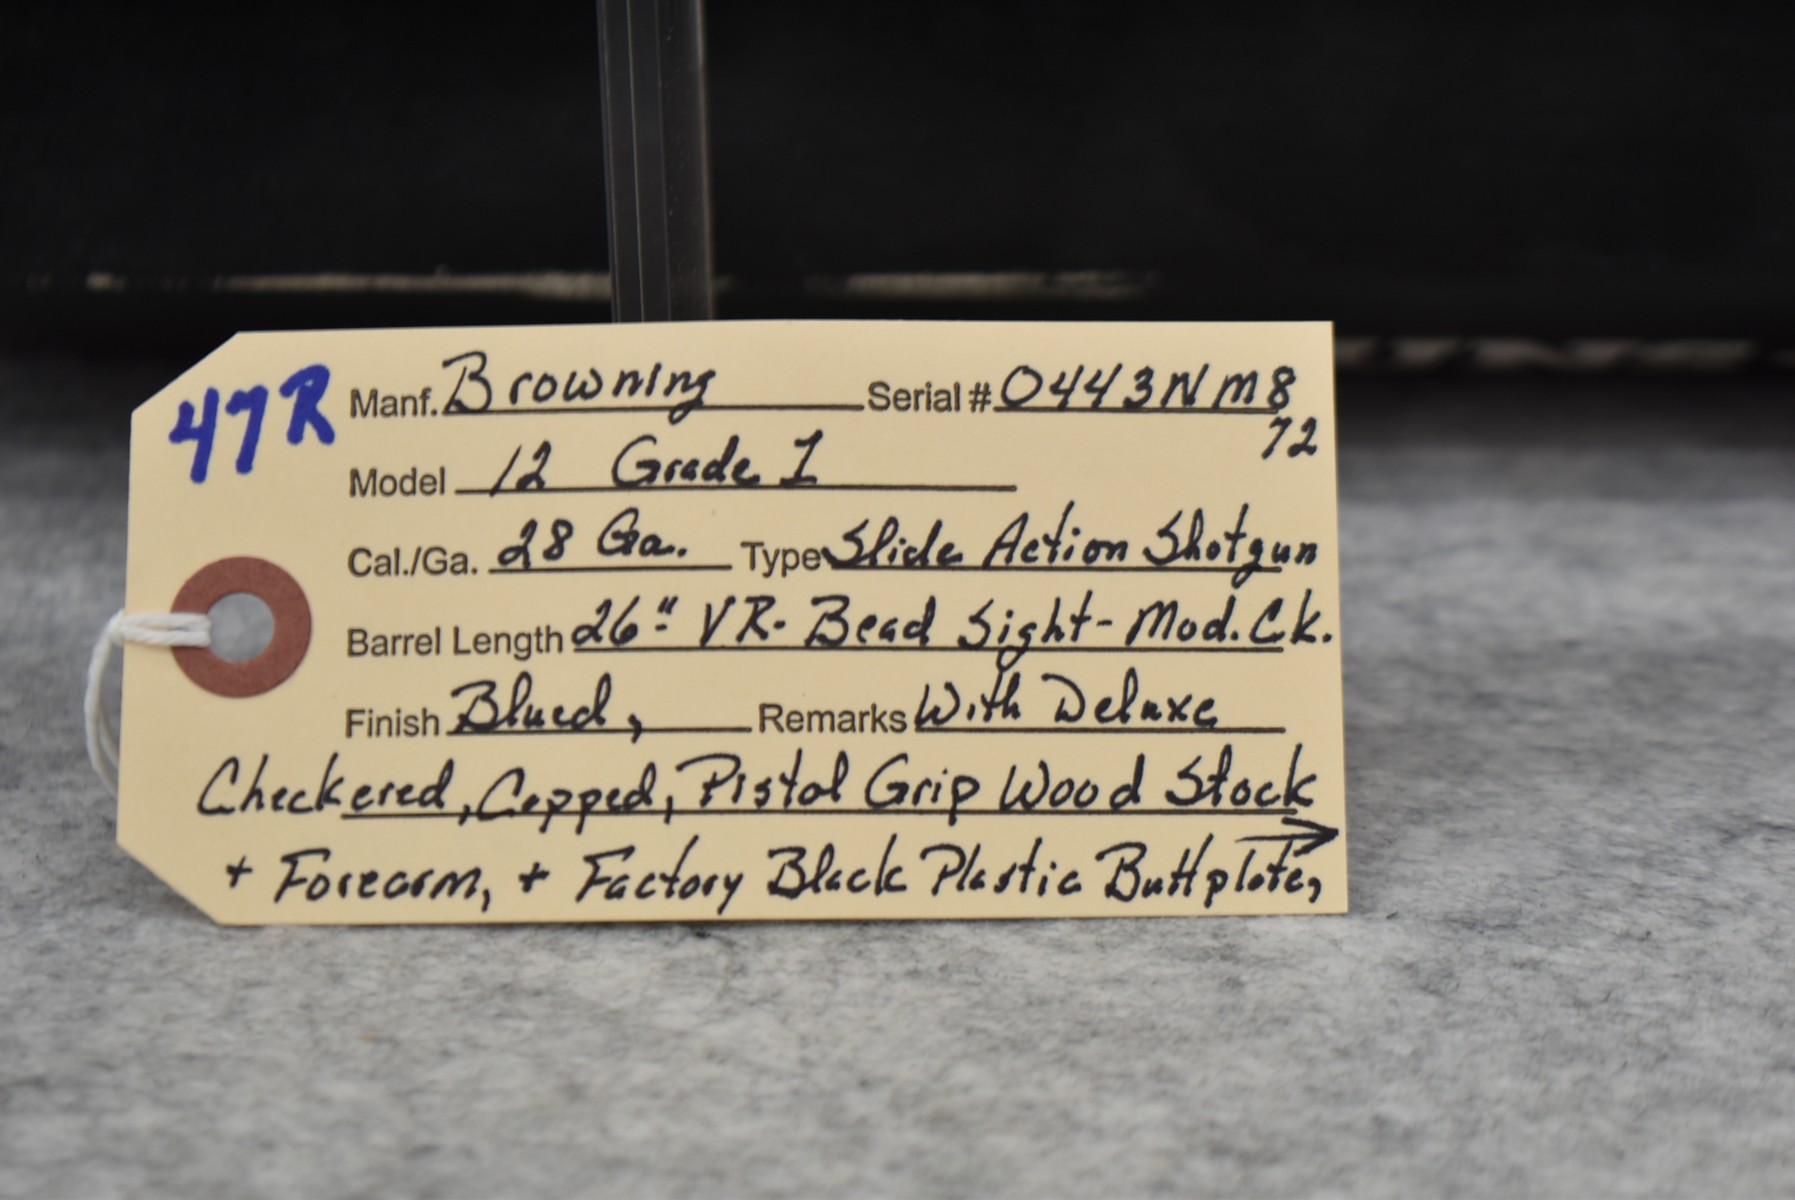 47R Manf. Browning Serial # 0443NM8
72
Model 12 Grade I
Cal./Ga. 28 Ga. Type Slide Action Shotgun
Barrel Length 26" VR. Bead Sight - Mod. Ck.
Finish Blued, Remarks With Deluxe
Checkered, Capped, Pistol Grip Wood Stock
+ Forearm, + Factory Black Plastic Buttplate, →